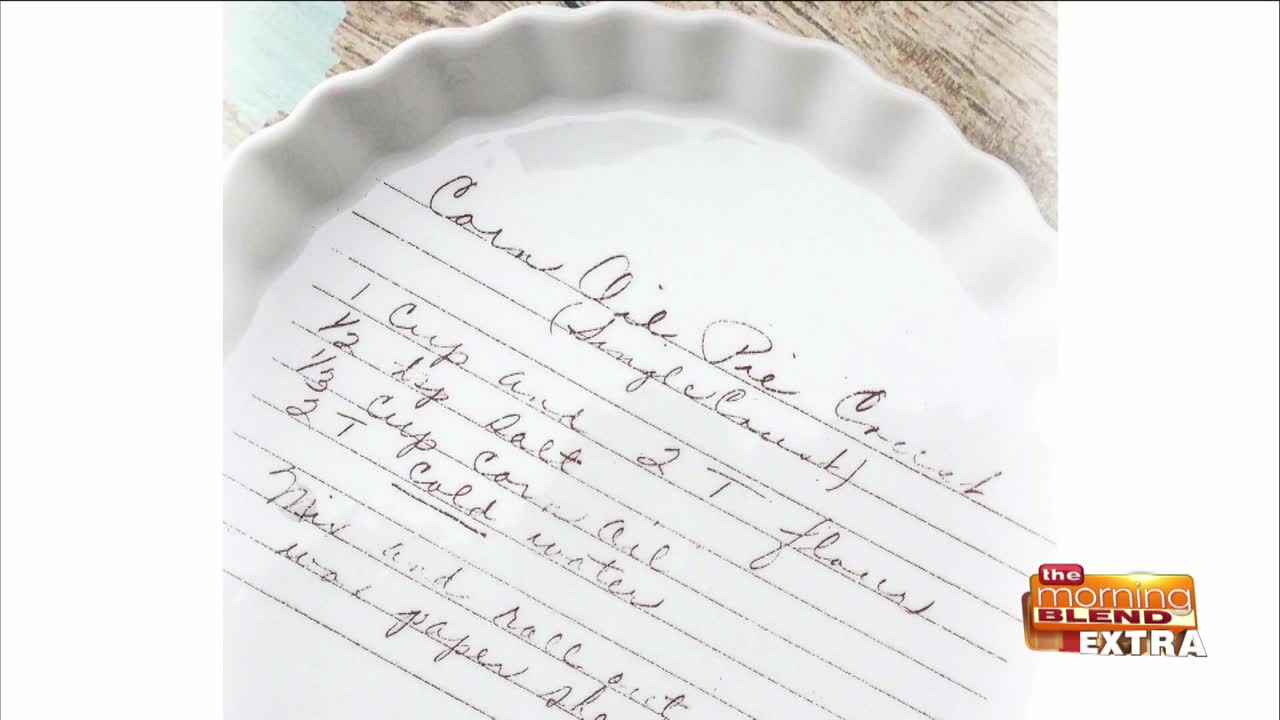 Corn Oil Pie Crust
(Single Crust)
1 Cup and 2 T flour
1/2 tsp Salt
1/3 Cup Corn Oil
2 T Cold water
Mix and roll out
wax paper
the
morning
BLEND
EXTRA